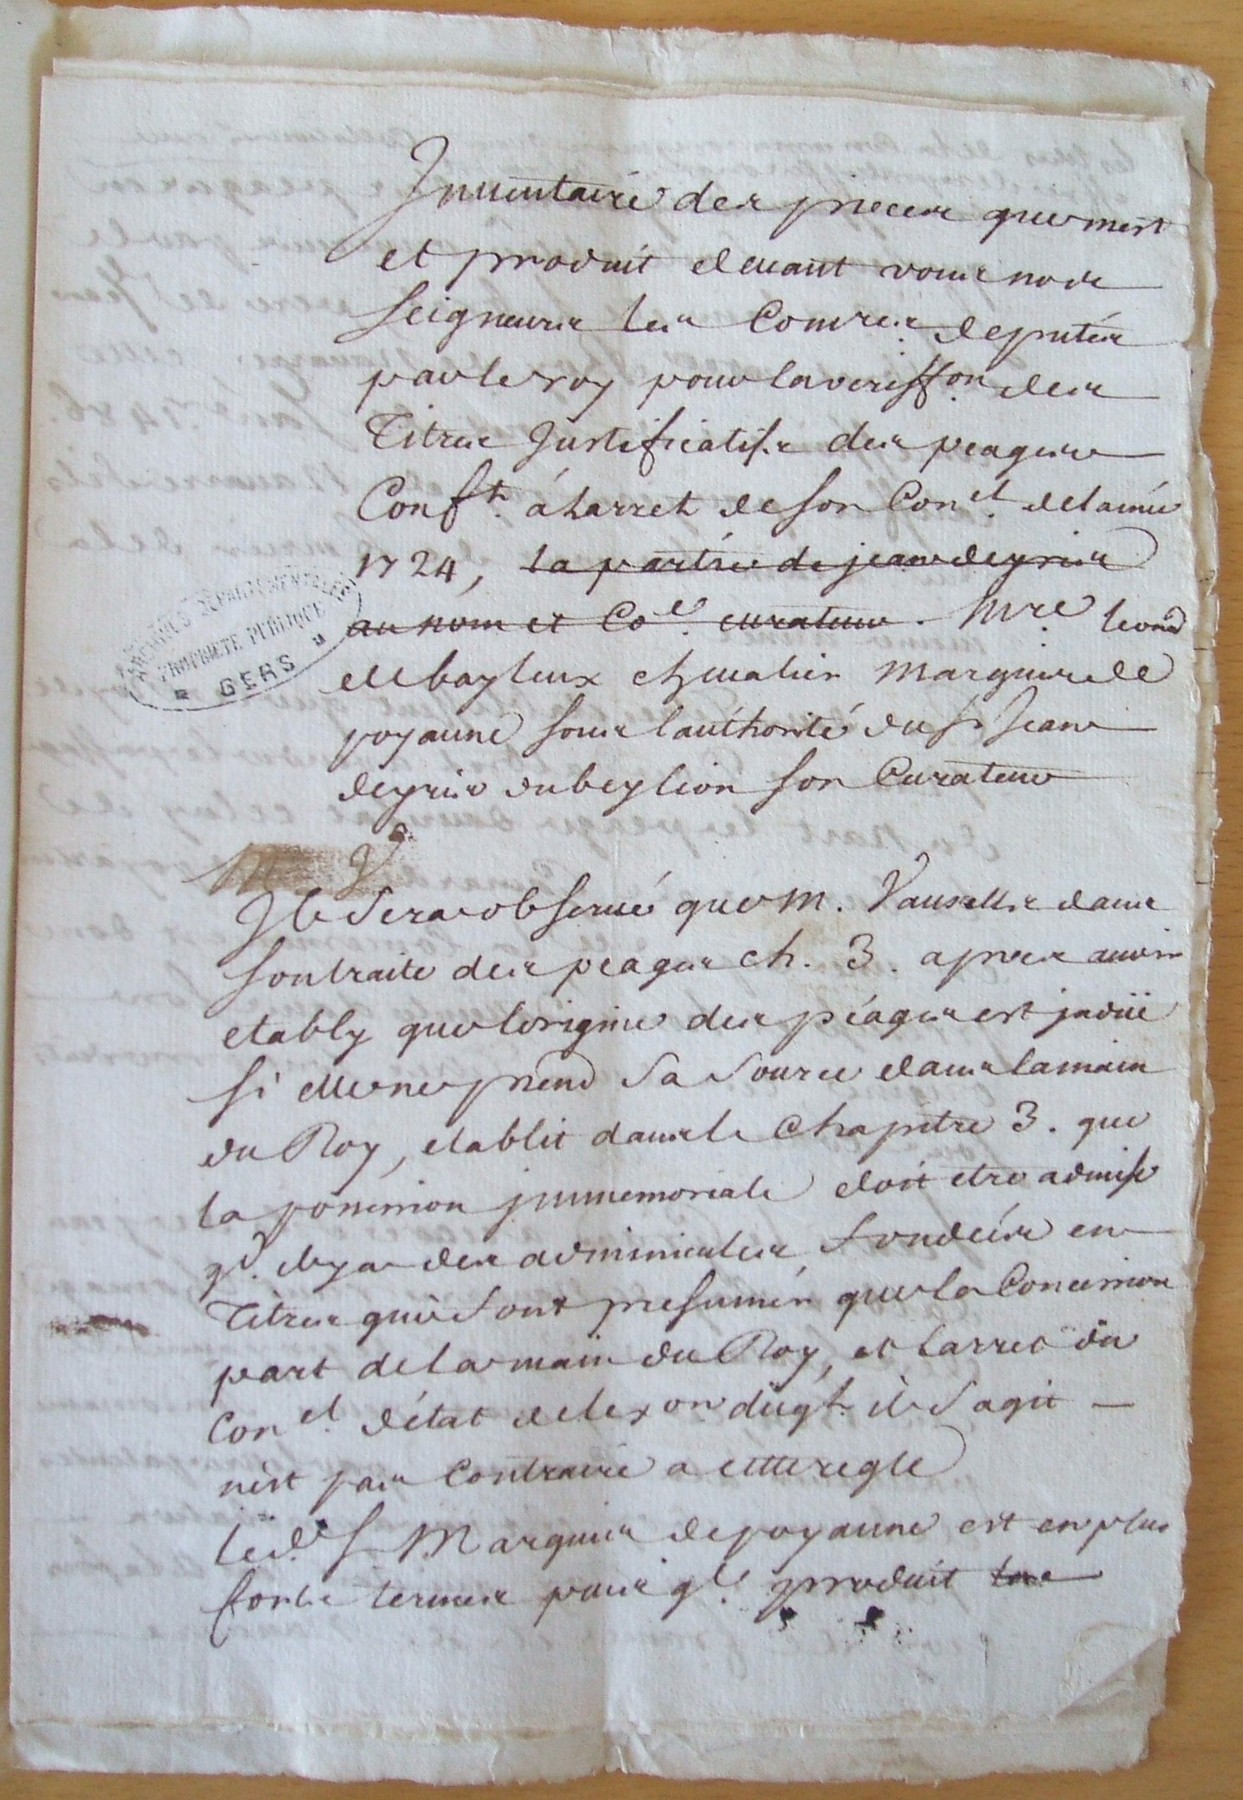 Inventaire des pieces que met
et produit devant vous nos
seigneurs les Comres. deputés
par le roy pour la veriffon. des
Titres Justificatifs des peages
Conft. á larret de son Conel. de lannée
1724, la partie de jean deyris
au nom et Coe. curateur. Mre leond
de baylenx chevalier marquis de
poyanne sous lauthorité du sr Jean
deyris dubeylion son Curateur
M V
Il sera observé que M. Vauzelle dans
son traite des peages ch. 3. apres avoir
etably que lorigine des péages est
si elle ne prend sa source dans la main
du Roy, etablit dans le chapitre 3. que
la possession immemoriale doit etre admise
qd. il y a des adminicules fondées en
Titres qui font presumer que la Concession
part de la main du Roy, et larret du
Conel. d'état de lexon duqt. il s'agit
nest pas Contraire a cette regle
led. sr Marquis de poyanne est en plus
forts termes puis ql. produit
ARCHIVES DEPARTEMENTALES
PROPRIETE PUBLIQUE
GERS